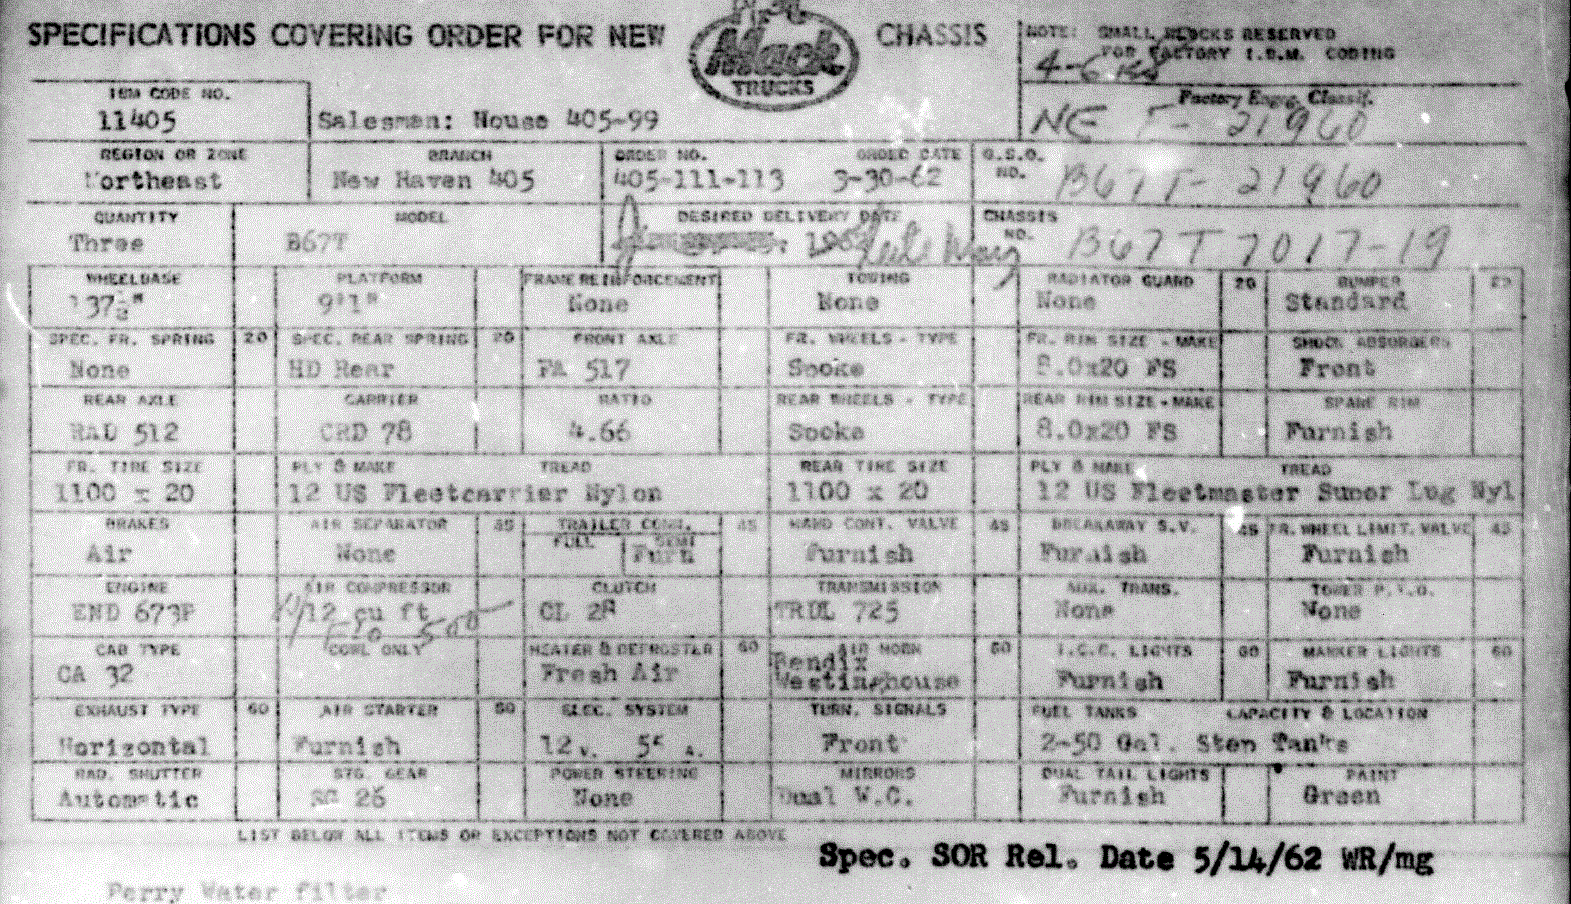 SPECIFICATIONS COVERING ORDER FOR NEW Mack TRUCKS CHASSIS
NOTE: SMALL BLOCKS RESERVED
FOR FACTORY I.B.M. CODING
IBM CODE NO.
11405
Salesman: House 405-99
Factory Engrg. Classif.
NE T- 21960
REGION OR ZONE BRANCH ORDER NO. ORDER DATE G.S.O. NO.
Northeast New Haven 405 405-111-113 3-30-62 B67T- 21960
QUANTITY MODEL DESIRED DELIVERY DATE CHASSIS NO.
Three B67T B67T 7017-19
WHEELBASE PLATFORM FRAME REINFORCEMENT TOWING RADIATOR GUARD 20 BUMPER 25
137½" 9'1" None None None Standard
SPEC. FR. SPRING 20 SPEC. REAR SPRING 20 FRONT AXLE FR. WHEELS - TYPE FR. RIM SIZE - MAKE SHOCK ABSORBERS
None HD Rear FA 517 Spoke 8.0x20 FS Front
REAR AXLE CARRIER RATIO REAR WHEELS - TYPE REAR RIM SIZE - MAKE SPARE RIM
RAD 512 CRD 78 4.66 Spoke 8.0x20 FS Furnish
FR. TIRE SIZE PLY & MAKE TREAD REAR TIRE SIZE PLY & MAKE TREAD
1100 x 20 12 US Fleetcarrier Nylon 1100 x 20 12 US Fleetmaster Super Lug Nyl
BRAKES AIR SEPARATOR 45 TRAILER CONN. 45 HAND CONT. VALVE 45 BREAKAWAY S.V. 45 FR. WHEEL LIMIT. VALVE 45
FULL SEMI
Air None Furn Furnish Furnish Furnish
ENGINE AIR COMPRESSOR CLUTCH TRANSMISSION AUX. TRANS. TOWER P.T.O.
END 673P 12 cu ft CL 28 TRDL 725 None None
500
CAB TYPE COWL ONLY HEATER & DEFROSTER 60 AIR HORN 60 I.C.C. LIGHTS 60 MARKER LIGHTS 60
CA 32 Fresh Air Bendix Westinghouse Furnish Furnish
EXHAUST TYPE 60 AIR STARTER 60 ELEC. SYSTEM TURN. SIGNALS FUEL TANKS CAPACITY & LOCATION
Horizontal Furnish 12 V. A. Front 2-50 Gal. Step Tanks
RAD. SHUTTER STG. GEAR POWER STEERING MIRRORS DUAL TAIL LIGHTS PAINT
Automatic SG 26 None Dual W.C. Furnish Green
LIST BELOW ALL ITEMS OR EXCEPTIONS NOT COVERED ABOVE
Spec. SOR Rel. Date 5/14/62 WR/mg
Perry Water filter